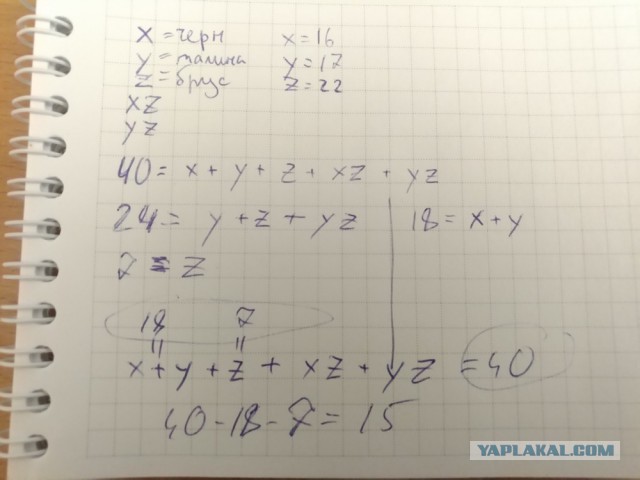 x = черн x = 16
y = малина y = 17
z = брус z = 22
xz
yz
40 = x + y + z + xz + yz
24 = y + z + yz 18 = x + y
7 = z
18 7
= =
x + y + z + xz + yz = 40
40 - 18 - 7 = 15
YAPLAKAL.COM